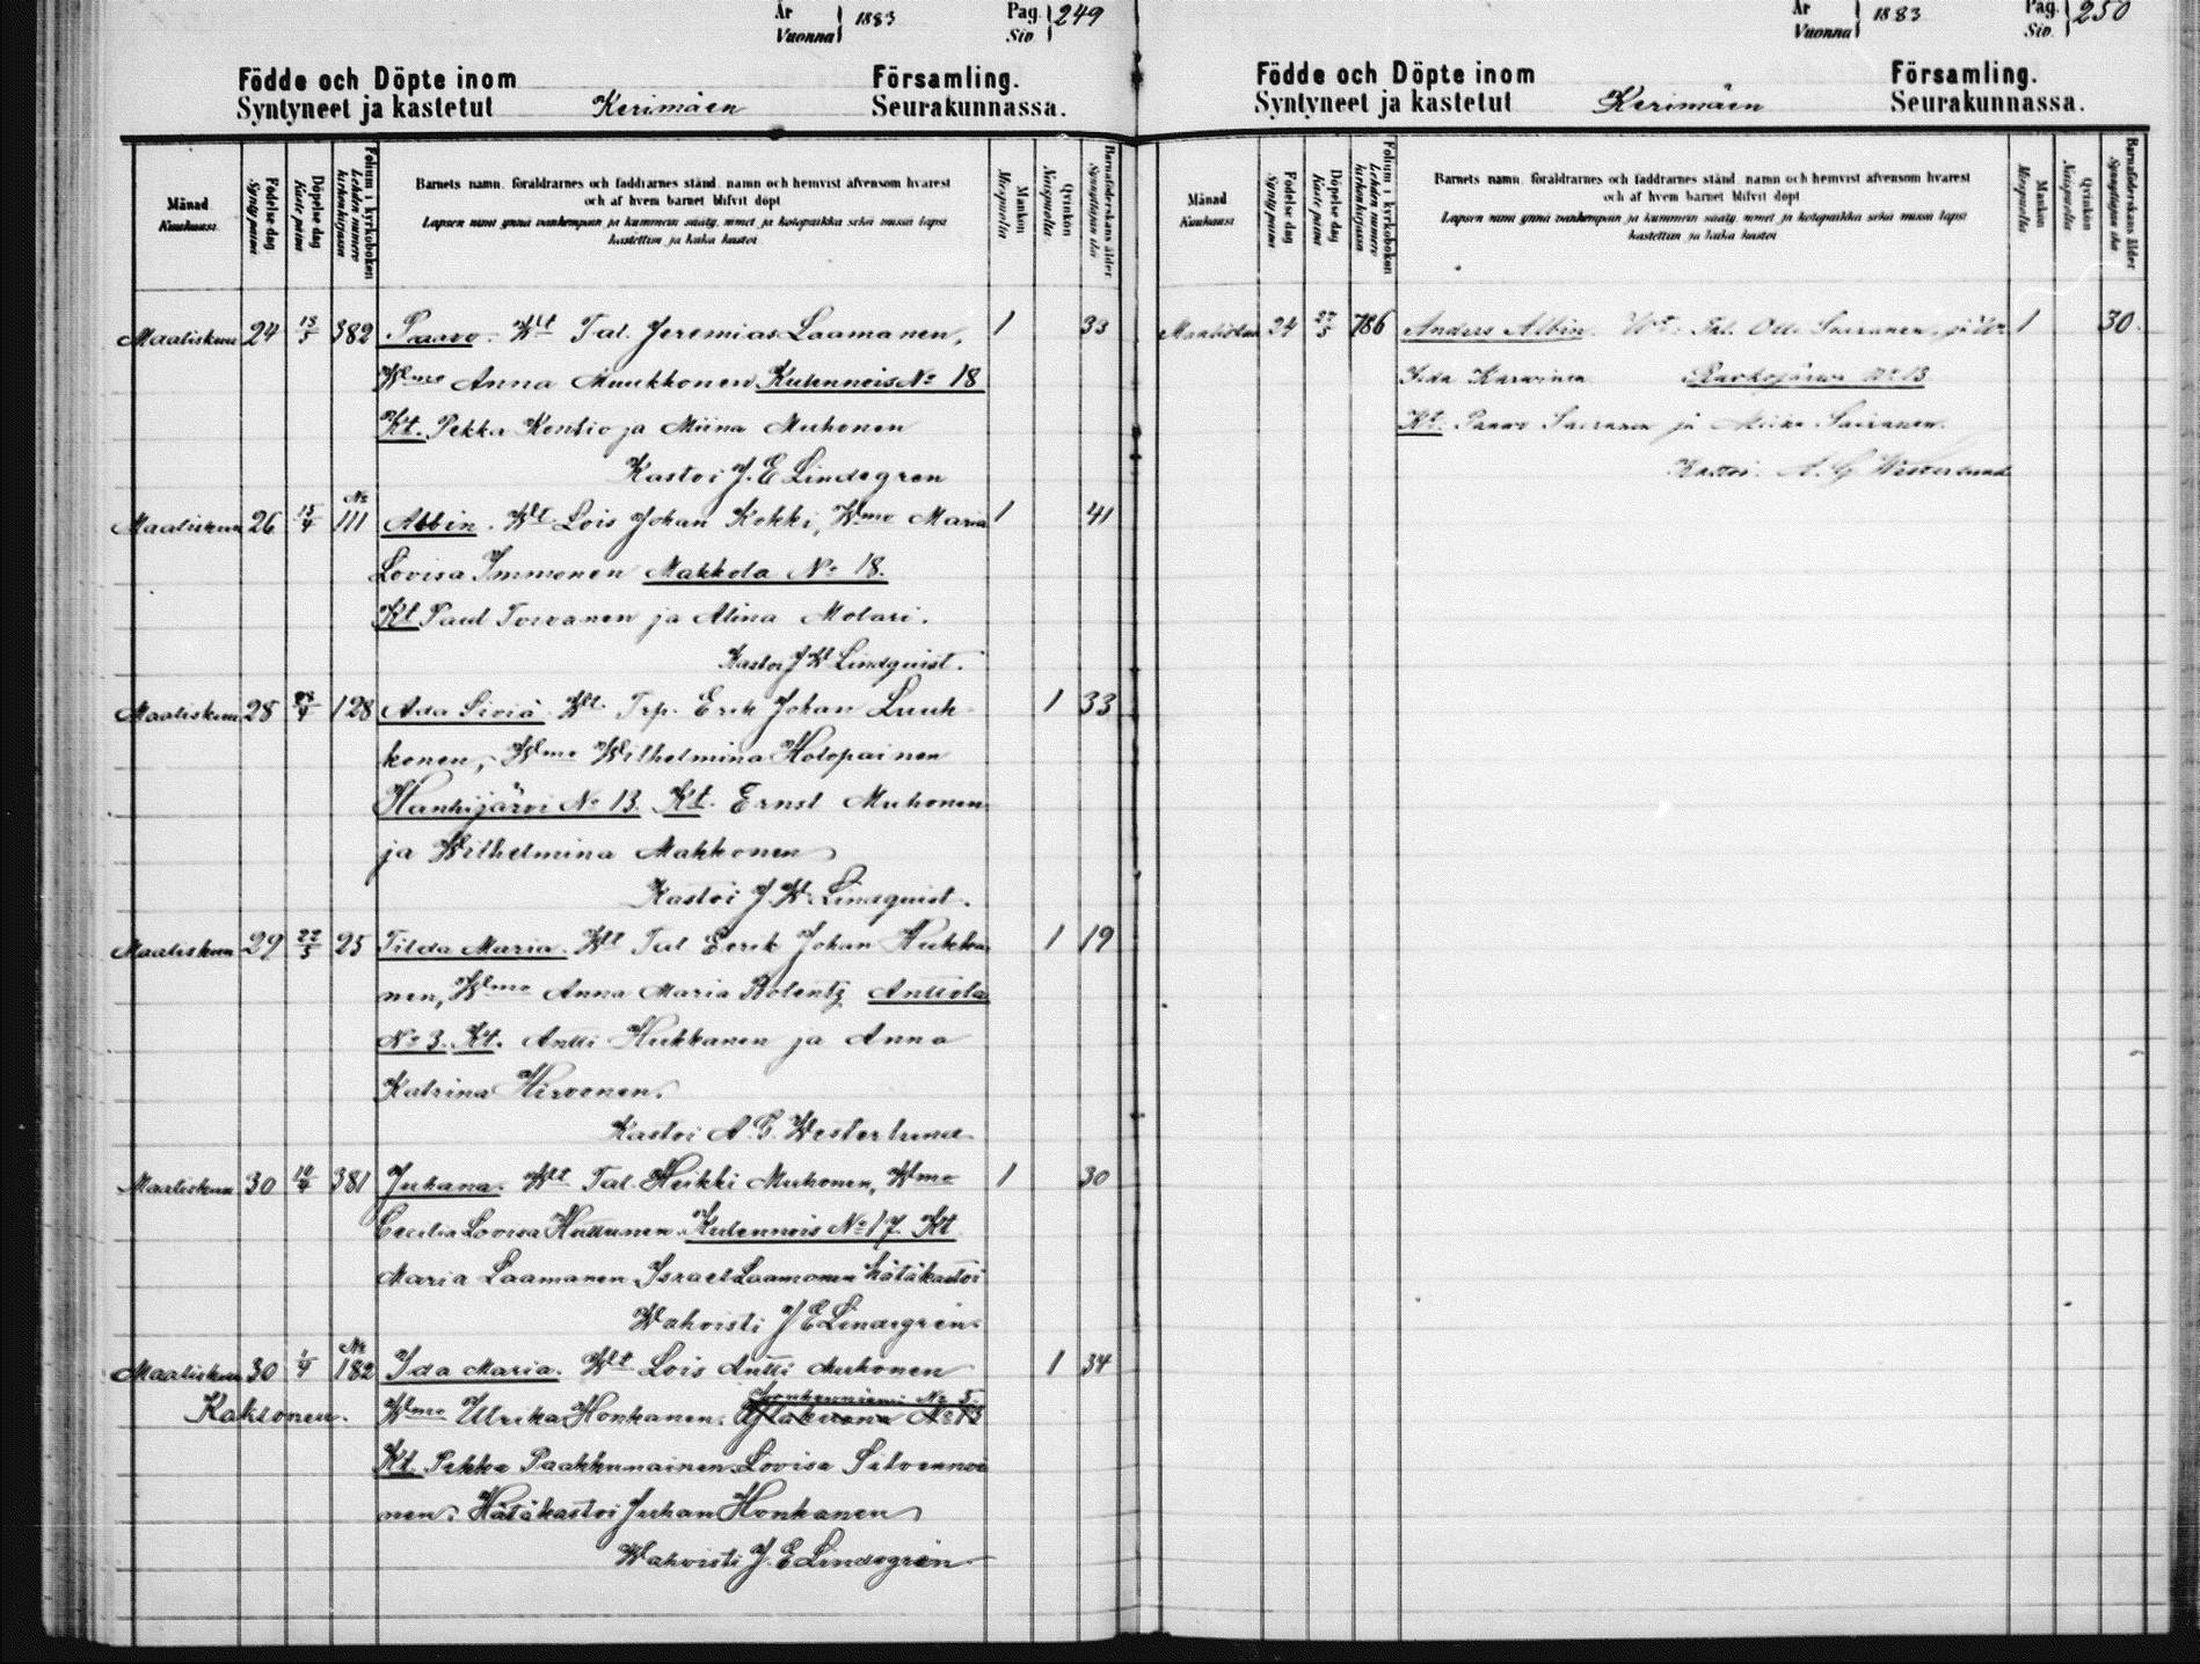 År
Vuonna 1883
Pag.
Siv. 249
Födde och Döpte inom Församling.
Syntyneet ja kastetut Kerimäen Seurakunnassa.
Månad
Kuukausi.
Födelse dag
Synty päivä
Döpelse dag
Kaste päivä
Folium i kyrkoboken
Lehden numero kirkonkirjassa
Barnets namn, föräldrarnes och faddrarnes stånd, namn och hemvist äfvensom hvarest
och af hvem barnet blifvit döpt
Lapsen nimi ynnä vanhempain ja kummein sääty, nimet ja kotopaikka sekä missä lapsi
kastettiin ja kuka kastoi
Mankön
Miespuolia
Qvinkön
Naispuolia
Barnaföderskans ålder
Synnyttäjän ikä
Maaliskuu 24 13/5 382 Paavo. Wlt Tal. Jeremias Laamanen, 1 33
Wmo Anna Muukkonen Kulennois No 18
Kt. Pekka Kontio ja Miina Muhonen
Kastoi J. E Lindegren
Maaliskuu 26 15/4 No 111 Albin. Wlt Lois Johan Kokki, Wmo Maria 1 41
Lovisa Immonen Makkola No 18.
Kt Paul Torvanen ja Alina Molari.
Kastoi J W Lindquist.
Maaliskuu 28 /4 128 Ada Siviä. Wlt. Trp. Erik Johan Luuk- 1 33
konen, Wmo Wilhelmina Holopainen
Hanhijärvi No 13. Kt. Ernst Muhonen
ja Wilhelmina Makkonen
Kastoi J. W. Lindquist.
Maaliskuu 29 22/5 25 Tilda Maria. Wlt Tal Eerik Johan Hukka- 1 19
nen, Wmo Anna Maria Bolentz Anttola
No 3. Kt. Antti Hukkanen ja Anna
Katrina Hirvonen.
Kastoi A. G. Westerlund
Maaliskuu 30 10/4 381 Juhana. Wlt Tal. Heikki Muhonen, Wmo 1 30
Cecilia Lovisa Huttunen. Kulennois No 17. Kt
Maria Laamanen Israel Laamanen hätäkastoi
Wahvisti J E Lindegrén.
Maaliskuu 30 1/4 No 182 Ida Maria. Wlt Lois Antti Muhonen 1 34
Kaksonen. Wmo Ulrika Honkanen. No 5.
Kt. Pekka Paakkunainen Lovisa Silvennoi-
nen. Hätäkastoi Juhan Honkanen
Wahvisti J. E Lindegrén
År
Vuonna 1883
Pag.
Siv. 250
Födde och Döpte inom Församling.
Syntyneet ja kastetut Kerimäen Seurakunnassa.
Månad
Kuukausi
Födelse dag
Synty päivä
Döpelse dag
Kaste päivä
Folium i kyrkoboken
Lehden numero kirkonkirjassa
Barnets namn, föräldrarnes och faddrarnes stånd, namn och hemvist äfvensom hvarest
och af hvem barnet blifvit döpt
Lapsen nimi ynnä vanhempain ja kummein sääty, nimet ja kotopaikka sekä missä lapsi
kastettiin ja kuka kastoi
Mankön
Miespuolia
Qvinkön
Naispuolia
Barnaföderskans ålder
Synnyttäjän ikä
Maaliskuu 24 22/5 786 Anders Albin. Wt. Tal. Otto Sairanen, ja Wo 1 30
Ida Karvinen Raikojärvi No 13
Kt. Paavo Sairanen ja Miina Sairanen.
Kastoi. A. G Westerlund